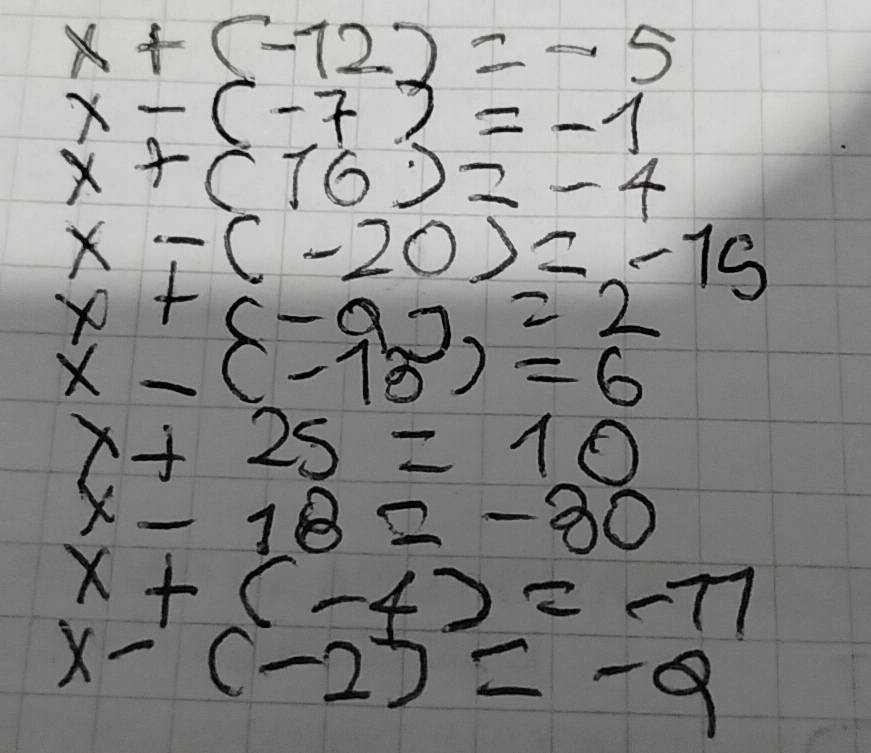 x + (-12) = - 5
x - (-7) = -1
x + (16) = - 4
x - (-20) = -15
x + (-9) = 2
x - (-18) = 6
x + 25 = 10
x - 18 = -30
x + (-4) = -11
x - (-2) = -9